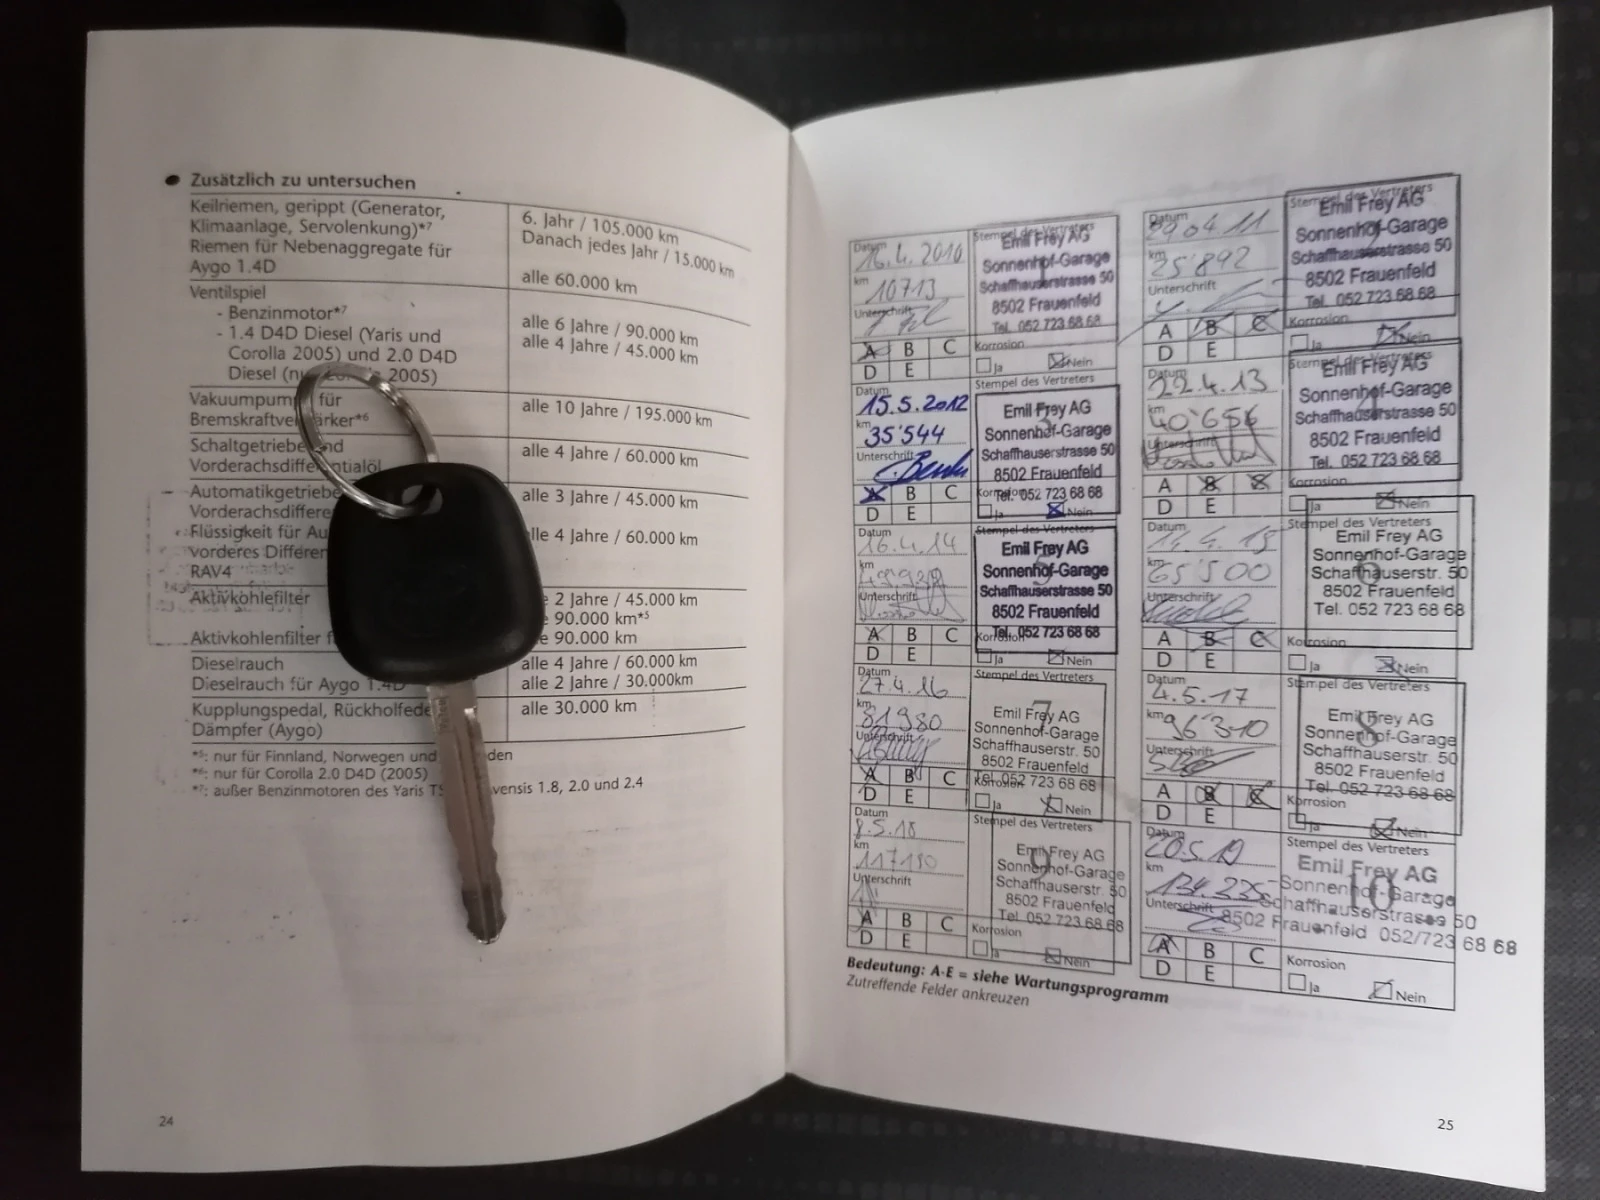 Zusätzlich zu untersuchen
Keilriemen, gerippt (Generator,
Klimaanlage, Servolenkung)*7
6. Jahr / 105.000 km
Danach jedes Jahr / 15.000 km
Riemen für Nebenaggregate für
Aygo 1.4D
alle 60.000 km
Ventilspiel
- Benzinmotor*7
alle 6 Jahre / 90.000 km
- 1.4 D4D Diesel (Yaris und
Corolla 2005) und 2.0 D4D
Diesel 2005)
alle 4 Jahre / 45.000 km
Vakuumpump für
Bremskraftve ärker*6
alle 10 Jahre / 195.000 km
Schaltgetriebe nd
Vorderachsdifferentialöl
alle 4 Jahre / 60.000 km
Automatikgetriebe
Vorderachsdiffere
alle 3 Jahre / 45.000 km
Flüssigkeit für Au
vorderes Differen
RAV4
alle 4 Jahre / 60.000 km
Aktivkohlefilter
e 2 Jahre / 45.000 km
e 90.000 km*5
Aktivkohlenfilter f
e 90.000 km
Dieselrauch
alle 4 Jahre / 60.000 km
Dieselrauch für Aygo 1.4D
alle 2 Jahre / 30.000km
Kupplungspedal, Rückholfede
Dämpfer (Aygo)
alle 30.000 km
*5: nur für Finnland, Norwegen und den
*6: nur für Corolla 2.0 D4D (2005)
*7: außer Benzinmotoren des Yaris TS vensis 1.8, 2.0 und 2.4
24
Datum
16.4.2010
km
10713
Unterschrift
A B C
D E
Stempel des Vertreters
1
Emil Frey AG
Sonnenhof-Garage
Schaffhauserstrasse 50
8502 Frauenfeld
Tel. 052 723 68 68
Korrosion
Ja Nein
Datum
29.04.11
km
25'892
Unterschrift
A B C
D E
Stempel des Vertreters
2
Emil Frey AG
Sonnenhof-Garage
Schaffhauserstrasse 50
8502 Frauenfeld
Tel. 052 723 68 68
Korrosion
Ja Nein
Datum
15.5.2012
km
35'544
Unterschrift
A B C
D E
Stempel des Vertreters
3
Emil Frey AG
Sonnenhof-Garage
Schaffhauserstrasse 50
8502 Frauenfeld
Tel. 052 723 68 68
Korrosion
Ja Nein
Datum
22.4.13
km
40'656
Unterschrift
A B C
D E
Stempel des Vertreters
4
Emil Frey AG
Sonnenhof-Garage
Schaffhauserstrasse 50
8502 Frauenfeld
Tel. 052 723 68 68
Korrosion
Ja Nein
Datum
16.4.14
km
Unterschrift
A B C
D E
Stempel des Vertreters
5
Emil Frey AG
Sonnenhof-Garage
Schaffhauserstrasse 50
8502 Frauenfeld
Tel. 052 723 68 68
Korrosion
Ja Nein
Datum
km
65'500
Unterschrift
A B C
D E
Stempel des Vertreters
6
Emil Frey AG
Sonnenhof-Garage
Schaffhauserstr. 50
8502 Frauenfeld
Tel. 052 723 68 68
Korrosion
Ja Nein
Datum
27.4.16
km
81980
Unterschrift
A B C
D E
Stempel des Vertreters
7
Emil Frey AG
Sonnenhof-Garage
Schaffhauserstr. 50
8502 Frauenfeld
Tel. 052 723 68 68
Korrosion
Ja Nein
Datum
4.5.17
km
96'310
Unterschrift
A B C
D E
Stempel des Vertreters
8
Emil Frey AG
Sonnenhof-Garage
Schaffhauserstr. 50
8502 Frauenfeld
Tel. 052 723 68 68
Korrosion
Ja Nein
Datum
8.5.18
km
117190
Unterschrift
A B C
D E
Stempel des Vertreters
9
Emil Frey AG
Sonnenhof-Garage
Schaffhauserstr. 50
8502 Frauenfeld
Tel. 052 723 68 68
Korrosion
Ja Nein
Datum
20.5.19
km
134.235
Unterschrift
A B C
D E
Stempel des Vertreters
10
Emil Frey AG
Sonnenhof-Garage
Schaffhauserstrasse 50
8502 Frauenfeld 052/723 68 68
Korrosion
Ja Nein
Bedeutung: A-E = siehe Wartungsprogramm
Zutreffende Felder ankreuzen
25